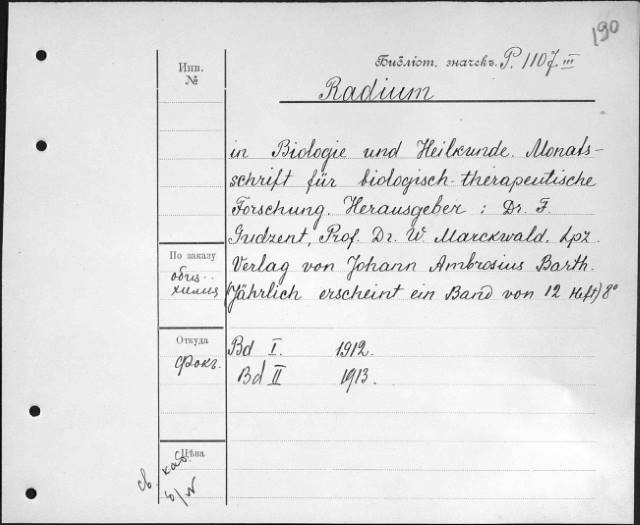 190
Библіот. значекъ. P. 1107 III
Инв.
№
Radium
in Biologie und Heilkunde. Monats-
schrift für biologisch-therapeutische
Forschung. Herausgeber : Dr. F.
Gudzent, Prof. Dr. W. Marckwald. Lpz.
Verlag von Johann Ambrosius Barth.
(Jährlich erscheint ein Band von 12 Heft) 8°
По заказу
Откуда
Фокъ.
Bd I. 1912.
Bd II 1913.
Цѣна